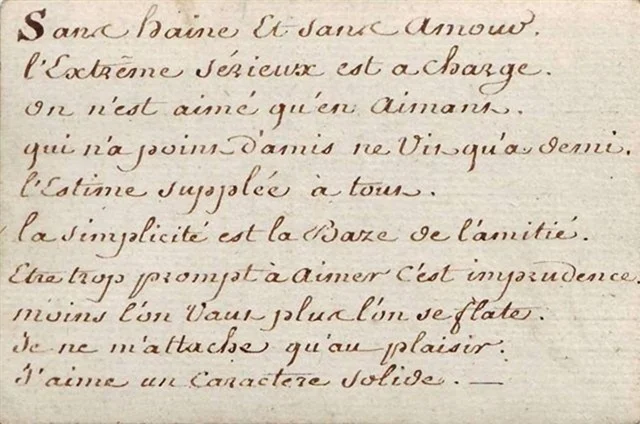 Sans haine Et sans Amour.
l'Extrême sérieux est a charge.
on n'est aimé qu'en Aimant.
qui n'a point d'amis ne Vit qu'a demi.
l'Estime supplée à tout.
la simplicité est la Baze de l'amitié.
Etre trop prompt à Aimer C'est imprudence.
moins l'on Vaut plus l'on se flate.
Je ne m'attache qu'au plaisir.
J'aime un Caractere solide. —